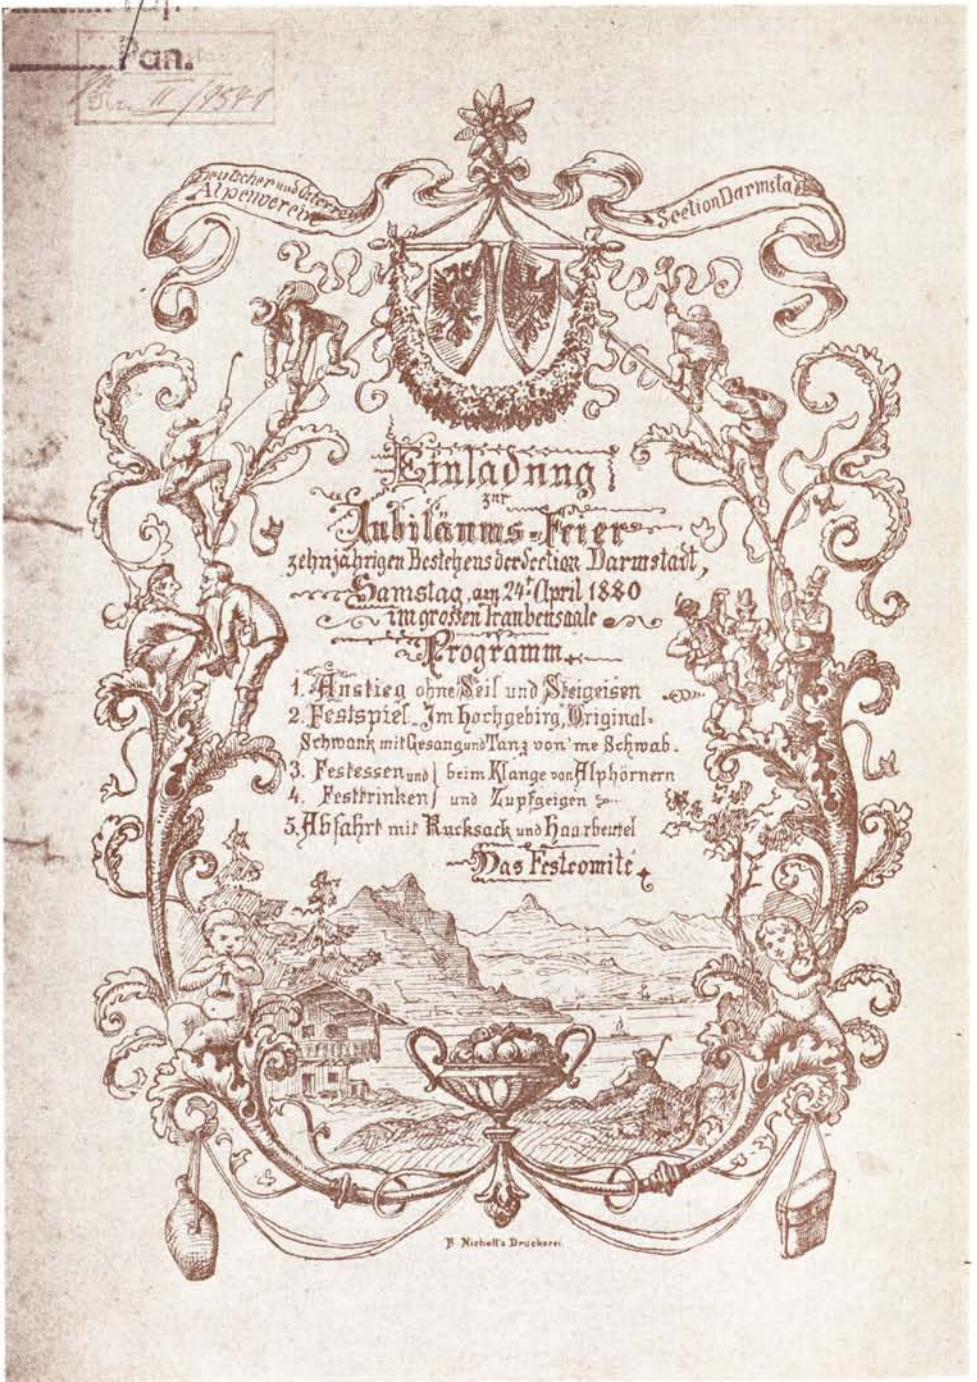 Pan.
II/9541
Deutscher und Österreich
Alpenverein
Section Darmsta
Einladung
zur
Jubiläums-Feier
zehnjährigen Bestehens der Section Darmstadt,
Samstag, am 24t April 1880
im grossen Traubensaale
Programm
1. Anstieg ohne Seil und Steigeisen
2. Festspiel „Im Hochgebirg" Original-
Schwank mit Gesang und Tanz von 'me Schwab.
3. Festessen und } beim Klange von Alphörnern
4. Festtrinken } und Zupfgeigen
5. Abfahrt mit Rucksack und Haarbeutel
Das Festcomité
Druckerei